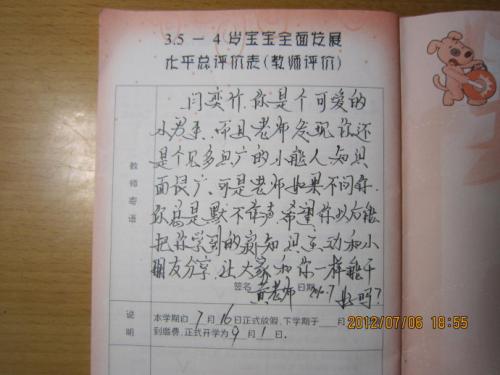 3.5－4岁宝宝全面发展
水平总评价表(教师评价)
闫奕竹，你是个可爱的
小男生，而且老师发现你还
是个见多且广的小能人，知识
面很广，可是老师如果不问你，
你总是默不作声，希望你以后能
把你学到的新知识主动和小
朋友分享，让大家和你一样能干
好吗？
教师寄语
签名 黄老师 日期
说明
本学期自7月16日正式放假，下学期于＿月
到缴费，正式开学为9月1日.
2012/07/06 18:55